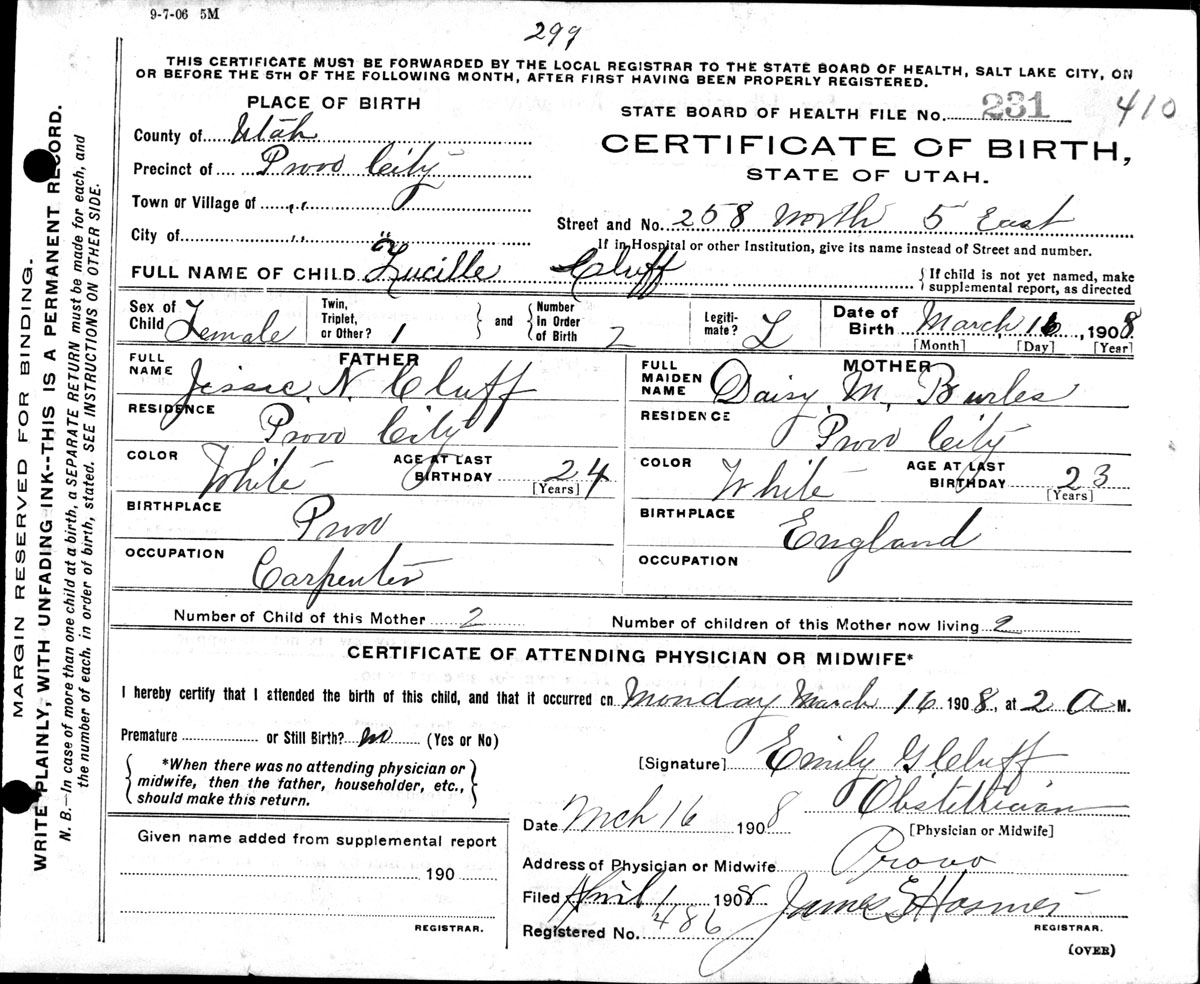 9-7-06 5M
299
THIS CERTIFICATE MUST BE FORWARDED BY THE LOCAL REGISTRAR TO THE STATE BOARD OF HEALTH, SALT LAKE CITY, ON
OR BEFORE THE 5TH OF THE FOLLOWING MONTH, AFTER FIRST HAVING BEEN PROPERLY REGISTERED.
PLACE OF BIRTH
STATE BOARD OF HEALTH FILE No. 231 410
County of Utah
CERTIFICATE OF BIRTH,
Precinct of Provo City
STATE OF UTAH.
Town or Village of ,,
Street and No. 258 North 5 East
City of ,, ,,
If in Hospital or other Institution, give its name instead of Street and number.
FULL NAME OF CHILD Lucille Cluff
{If child is not yet named, make
supplemental report, as directed
Sex of Child Female
Twin, Triplet, or Other? 1 } and { Number In Order of Birth 2
Legiti-mate? L
Date of Birth March, 16, 1908.
[Month] [Day] [Year]
FATHER
FULL NAME Jessie. N. Cluff
RESIDENCE Provo City
COLOR White AGE AT LAST BIRTHDAY 24
[Years]
BIRTHPLACE Provo
OCCUPATION Carpenter
MOTHER
FULL MAIDEN NAME Daisy. M. Burles
RESIDENCE Provo City
COLOR White AGE AT LAST BIRTHDAY 23
[Years]
BIRTHPLACE England
OCCUPATION
Number of Child of this Mother 2
Number of children of this Mother now living 2
CERTIFICATE OF ATTENDING PHYSICIAN OR MIDWIFE*
I hereby certify that I attended the birth of this child, and that it occurred on Monday March 16 1908, at 2 A M.
Premature or Still Birth? no (Yes or No)
*When there was no attending physician or
midwife, then the father, householder, etc.,
should make this return.
[Signature] Emily G Cluff
Obstetrician
Date Mch 16 1908
[Physician or Midwife]
Given name added from supplemental report
190
REGISTRAR.
Address of Physician or Midwife Provo
Filed April 1 1908 James E Hosmer
Registered No. 486
REGISTRAR.
(OVER)
MARGIN RESERVED FOR BINDING.
WRITE PLAINLY, WITH UNFADING INK--THIS IS A PERMANENT RECORD.
N. B.—In case of more than one child at a birth, a SEPARATE RETURN must be made for each, and
the number of each, in order of birth, stated. SEE INSTRUCTIONS ON OTHER SIDE.